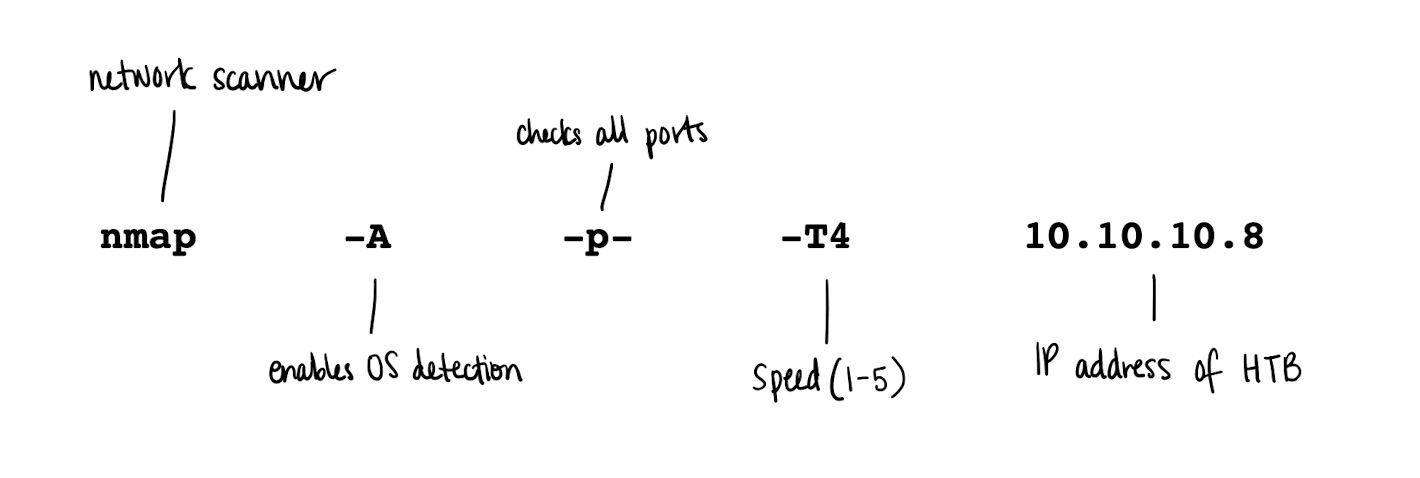 network scanner
checks all ports
nmap -A -p- -T4 10.10.10.8
enables OS detection
Speed (1-5)
IP address of HTB